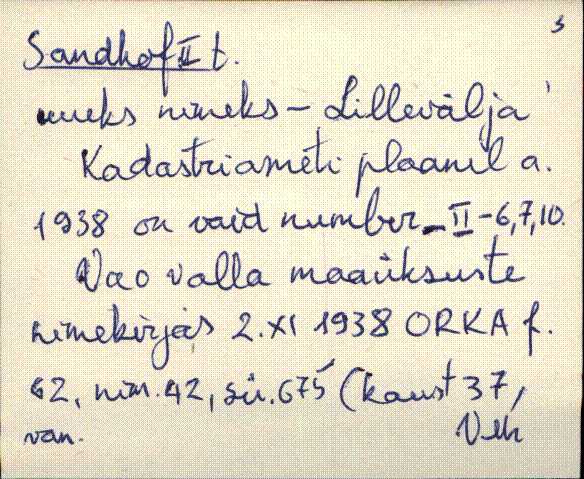 3
Sandhof II t.
uueks nimeks - Lillevälja
Kadastriameti plaanil a.
1938 on vaid number - II - 6, 7, 10.
Vao valla maaüksuste
nimekirjas 2. XI 1938 ORKA f.
62, nim. 42, sü. 675 (kaust 37,
van.